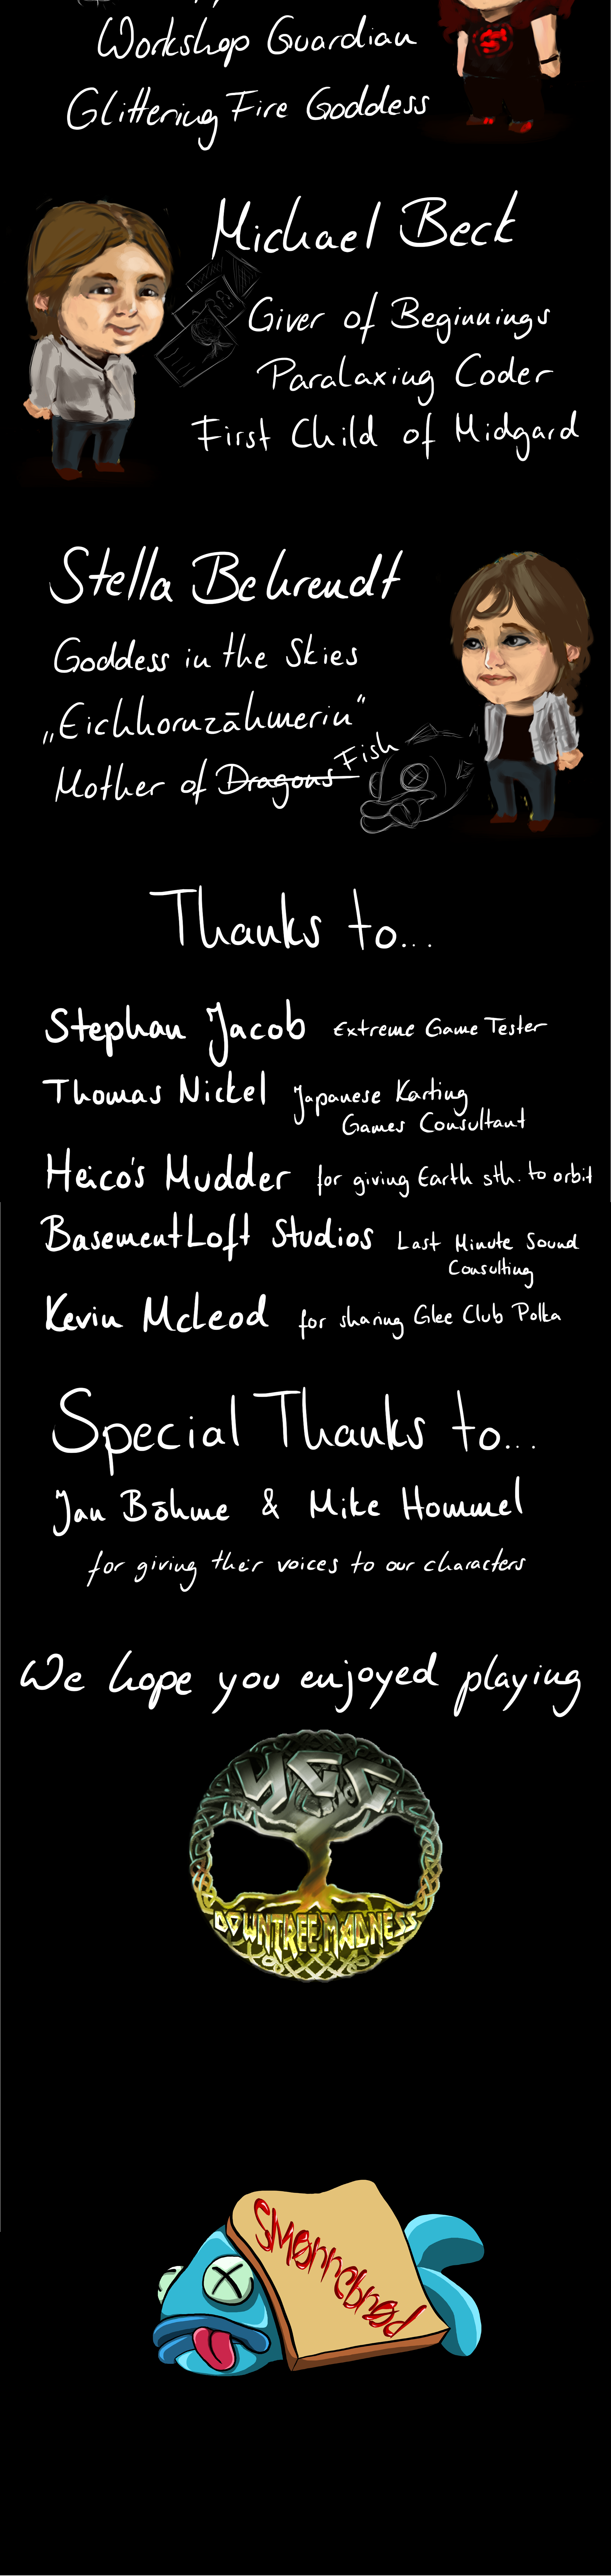 Workshop Guardian
Glittering Fire Goddess
Michael Beck
Giver of Beginnings
Paralaxing Coder
First Child of Midgard
Stella Behrendt
Goddess in the Skies
„Eichhornzähmerin“
Mother of Dragons Fish
Thanks to...
Stephan Jacob Extreme Game Tester
Thomas Nickel Japanese Karting
Games Consultant
Heico's Mudder for giving Earth sth. to orbit
BasementLoft Studios Last Minute Sound
Consulting
Kevin McLeod for sharing Glee Club Polka
Special Thanks to...
Jan Böhme & Mike Hommel
for giving their voices to our characters
We hope you enjoyed playing
YGG
DOWNTREE MADNESS
SMørrebrød